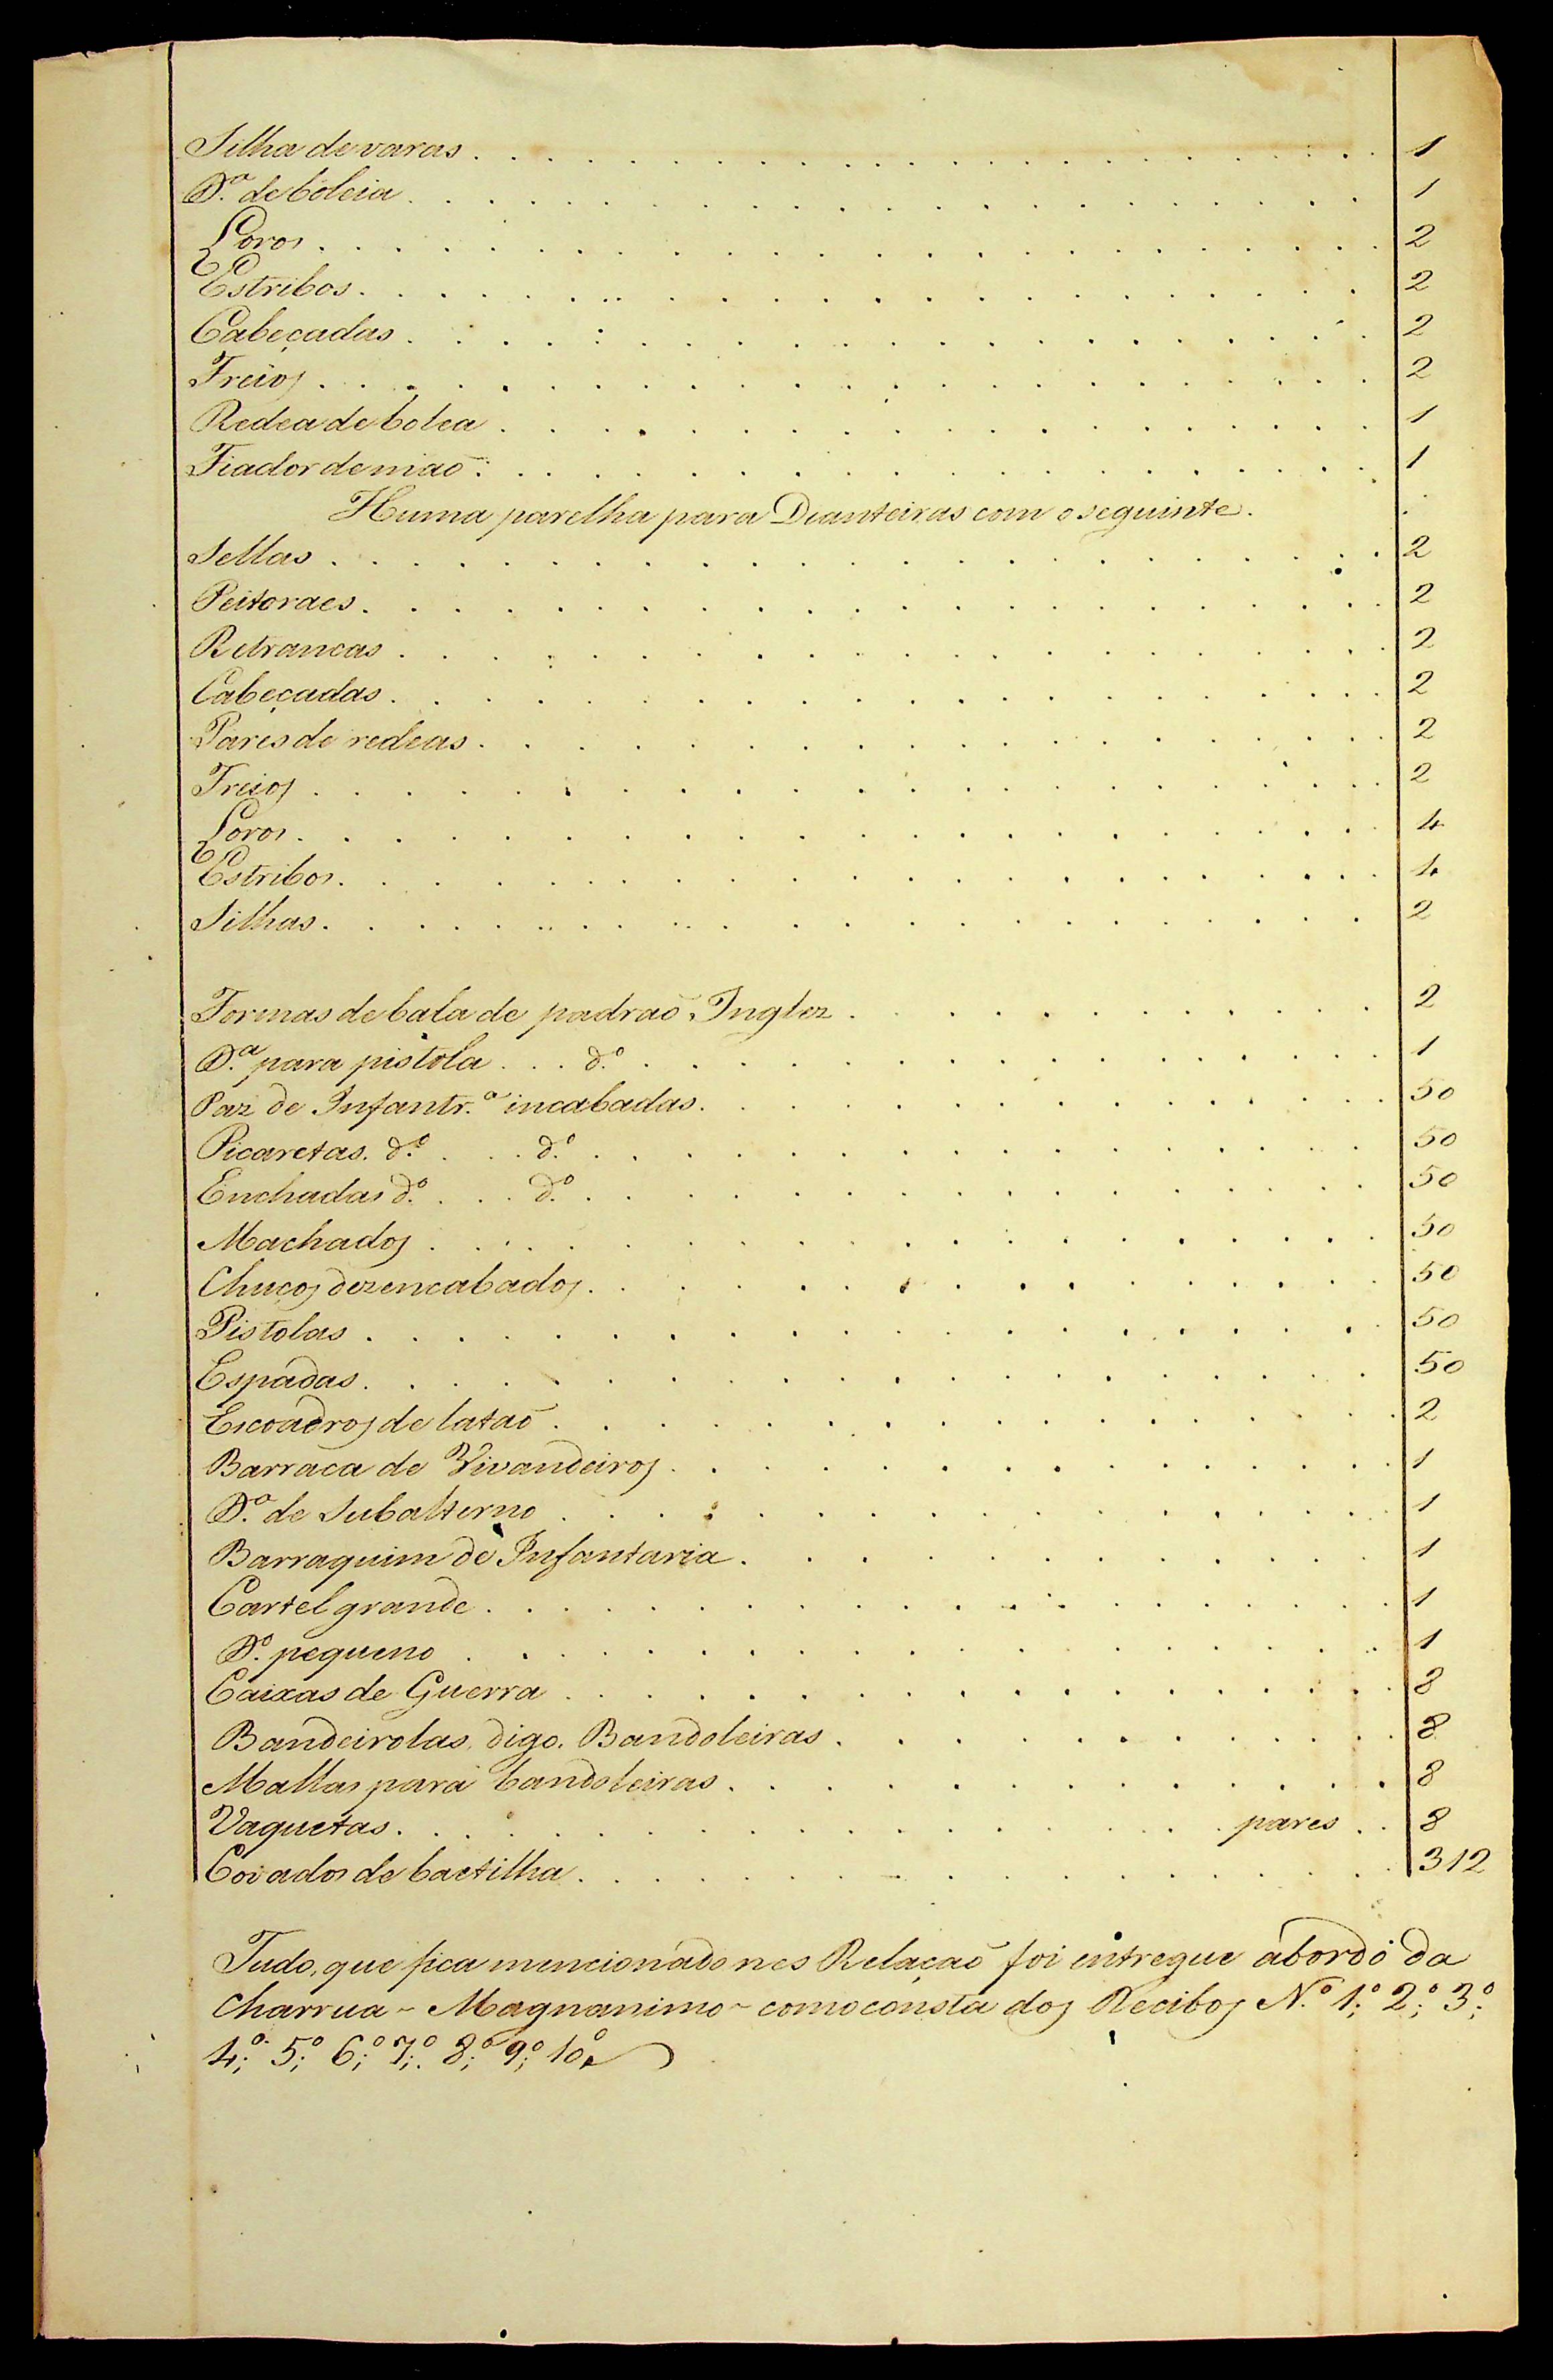 Silha de varas . . . 1
D.ª de boleia . . . 1
Loros . . . 2
Estribos . . . 2
Cabeçadas . . . 2
Freios . . . 2
Redea de bolea . . . 1
Fiador de maõ . . . 1
Huma parelha para Dianteiras com o seguinte.
Sellas . . . 2
Peitoraes . . . 2
Retrancas . . . 2
Cabeçadas . . . 2
Pares de redeas . . . 2
Freios . . . 2
Loros . . . 4
Estribos . . . 4
Silhas . . . 2
Formas de bala de padraõ Inglez . . . 2
D.ª para pistola . . . d.º . . . 1
Paz de Infantr.ª incabadas . . . 50
Picaretas d.º . . . d.º . . . 50
Enchadas d.º . . . d.º . . . 50
Machados . . . 50
Chuços dezencabados . . . 50
Pistolas . . . 50
Espadas . . . 50
Escoadros de lataõ . . . 2
Barraca de Vivandeiros . . . 1
D.ª de Subalterno . . . 1
Barraquim de Infantaria . . . 1
Cartel grande . . . 1
D.º pequeno . . . 1
Caixas de Guerra . . . 8
Bandeirolas, digo, Bandoleiras . . . 8
Mallas para bandoleiras . . . 8
Vaquetas . . . pares . . 8
Covados de baetilha . . . 312
Tudo, que fica mencionado nes Relaçaõ foi entregue abordo da
Charrua - Magnanimo - como consta dos Recibos N.º 1.º; 2.º; 3.º;
4.º; 5.º; 6.º; 7.º; 8.º; 9.º; 10.º